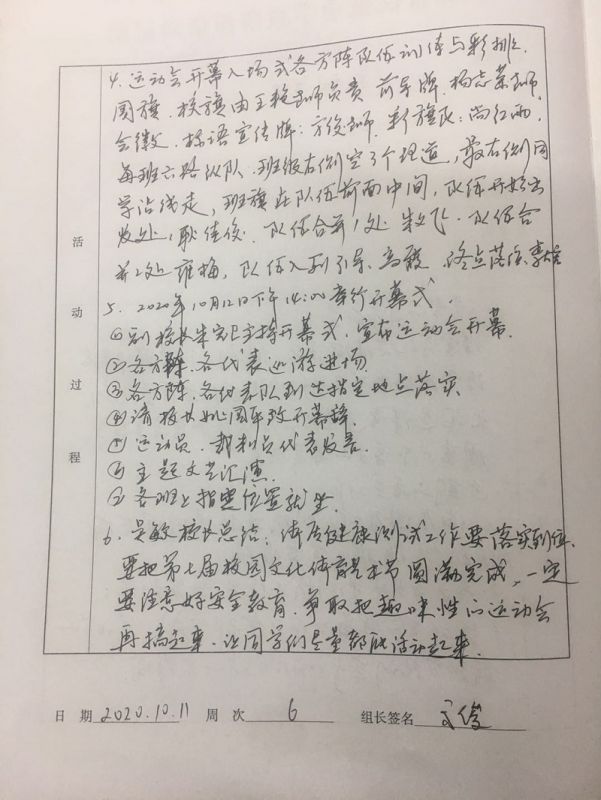 4. 运动会开幕入场式各方阵队伍训练与彩排.
国旗、校旗由王艳老师负责 前导牌.杨志荣老师
会徽、标语宣传牌:方俊老师、彩旗队:尚红雨.
每班六路纵队.班级右侧空3个跑道,最右侧同
学沿线走,班旗在队伍前面中间,队伍开始出
发处,耿佳俊.队伍合并1处 朱文飞.队伍合
并2处 雍梅,队伍入列引导、高霞 终点落位、李雄
活动过程
5. 2020年10月12日下午14:00举行开幕式.
①副校长朱宏卫主持开幕式,宣布运动会开幕.
②各方阵、各代表巡游进场
③各方阵、各代表队到达指定地点落实
④请校长姚国军致开幕辞.
⑤运动员、裁判员代表发言.
⑥主题文艺汇演.
⑦各班上指定位置就坐.
6. 吴敏校长总结、体质健康测试工作要落实到位.
要把第七届校园文化体育艺术节圆满完成,一定
要注意好安全教育.争取把趣味性的运动会
再搞起来.让同学们尽量都能活动起来.
日 期 2020.10.11 周 次 6 组长签名